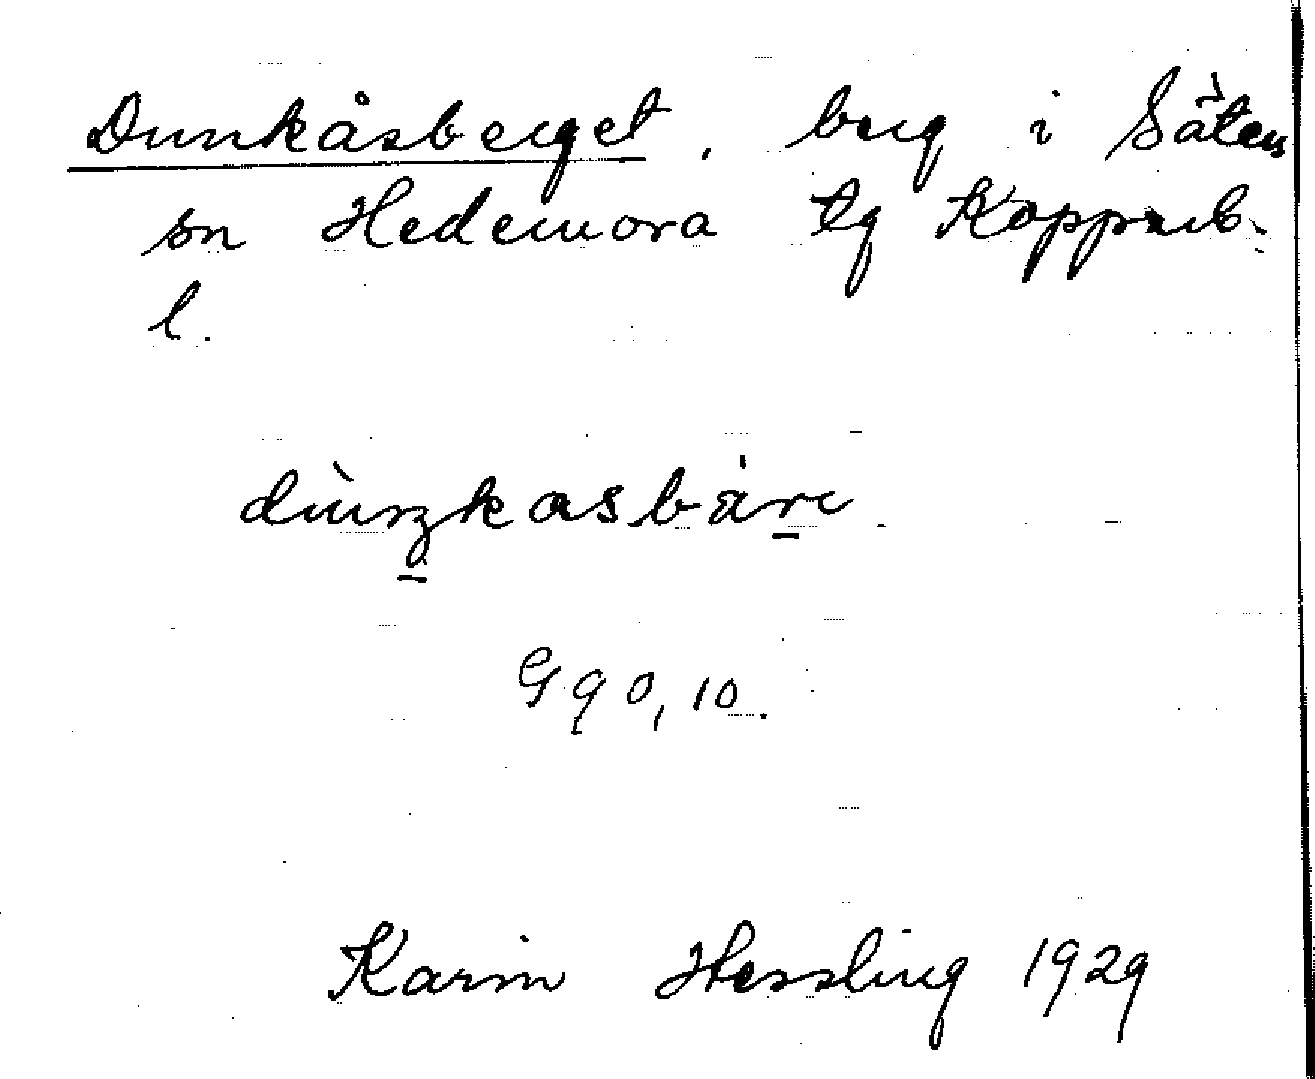 Dunkåsberget, berg i Säters
sn Hedemora tg Kopparb.
l.
dùŋkasbäre
G 90, 10.
Karin Hessling 1929